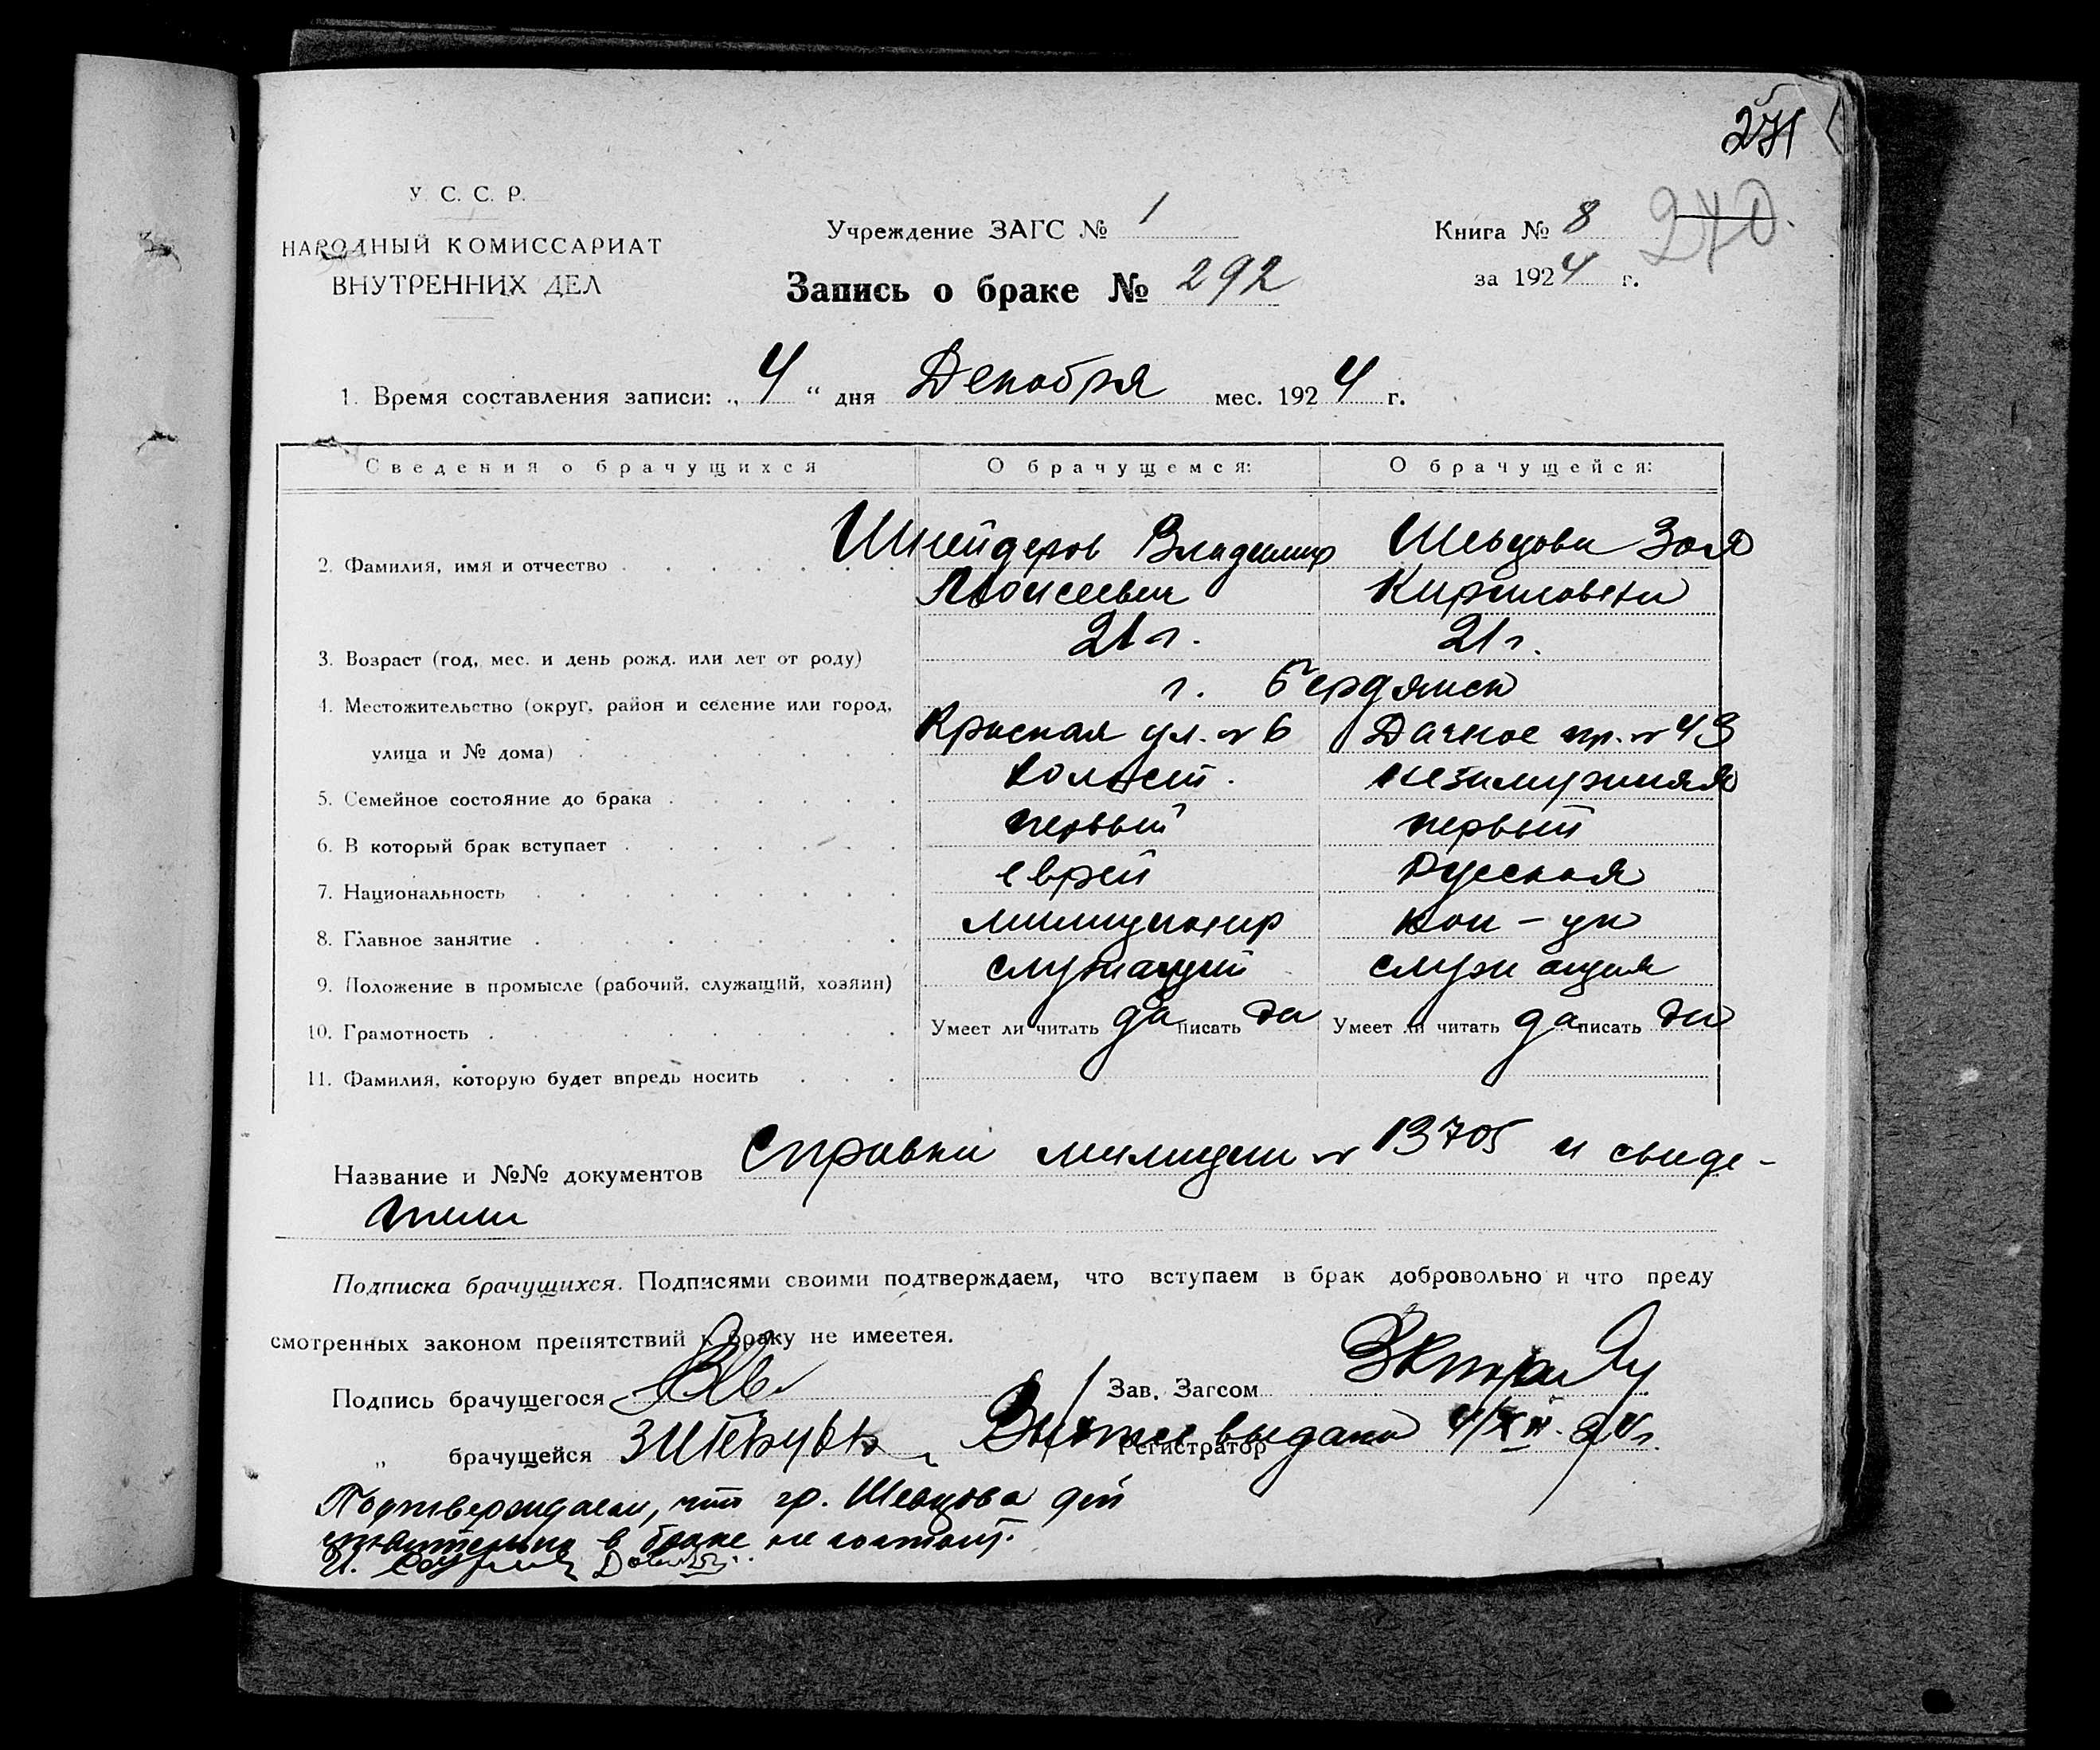 271
У. С. С. Р.
НАРОДНЫЙ КОМИССАРИАТ
ВНУТРЕННИХ ДЕЛ
Учреждение ЗАГС № 1
Запись о браке № 292
Книга № 8
240
за 1924 г.
1. Время составления записи: „ 4 “ дня Декабря мес. 1924 г.
Сведения о брачущихся О брачущемся: О брачущейся:
2. Фамилия, имя и отчество Шнейдеров Владимир Шевцова Зоя
Моисеевич Кирилловна
3. Возраст (год, мес. и день рожд. или лет от роду) 21 г. 21 г.
4. Местожительство (округ, район и селение или город, г. Бердянск
улица и № дома) Красная ул. № 6 Дачное пр. № 43
5. Семейное состояние до брака холост. незамужняя
6. В который брак вступает первый первый
7. Национальность еврей русская
8. Главное занятие милиционер кон-ца
9. Положение в промысле (рабочий, служащий, хозяин) служащий служащая
10. Грамотность Умеет ли читать да писать да Умеет ли читать да писать да
11. Фамилия, которую будет впредь носить
Название и №№ документов Справки милиции № 13705 и свиде-
тели
Подписка брачущихся. Подписями своими подтверждаем, что вступаем в брак добровольно и что преду
смотренных законом препятствий к браку не имеется.
Подпись брачущегося Зав. Загсом
„ брачущейся ЗШевцова Регистратор Выпись выдана 4/XII-24г.
Подтверждаем, что гр. Шевцова дей
ствительно в браке не состоит.